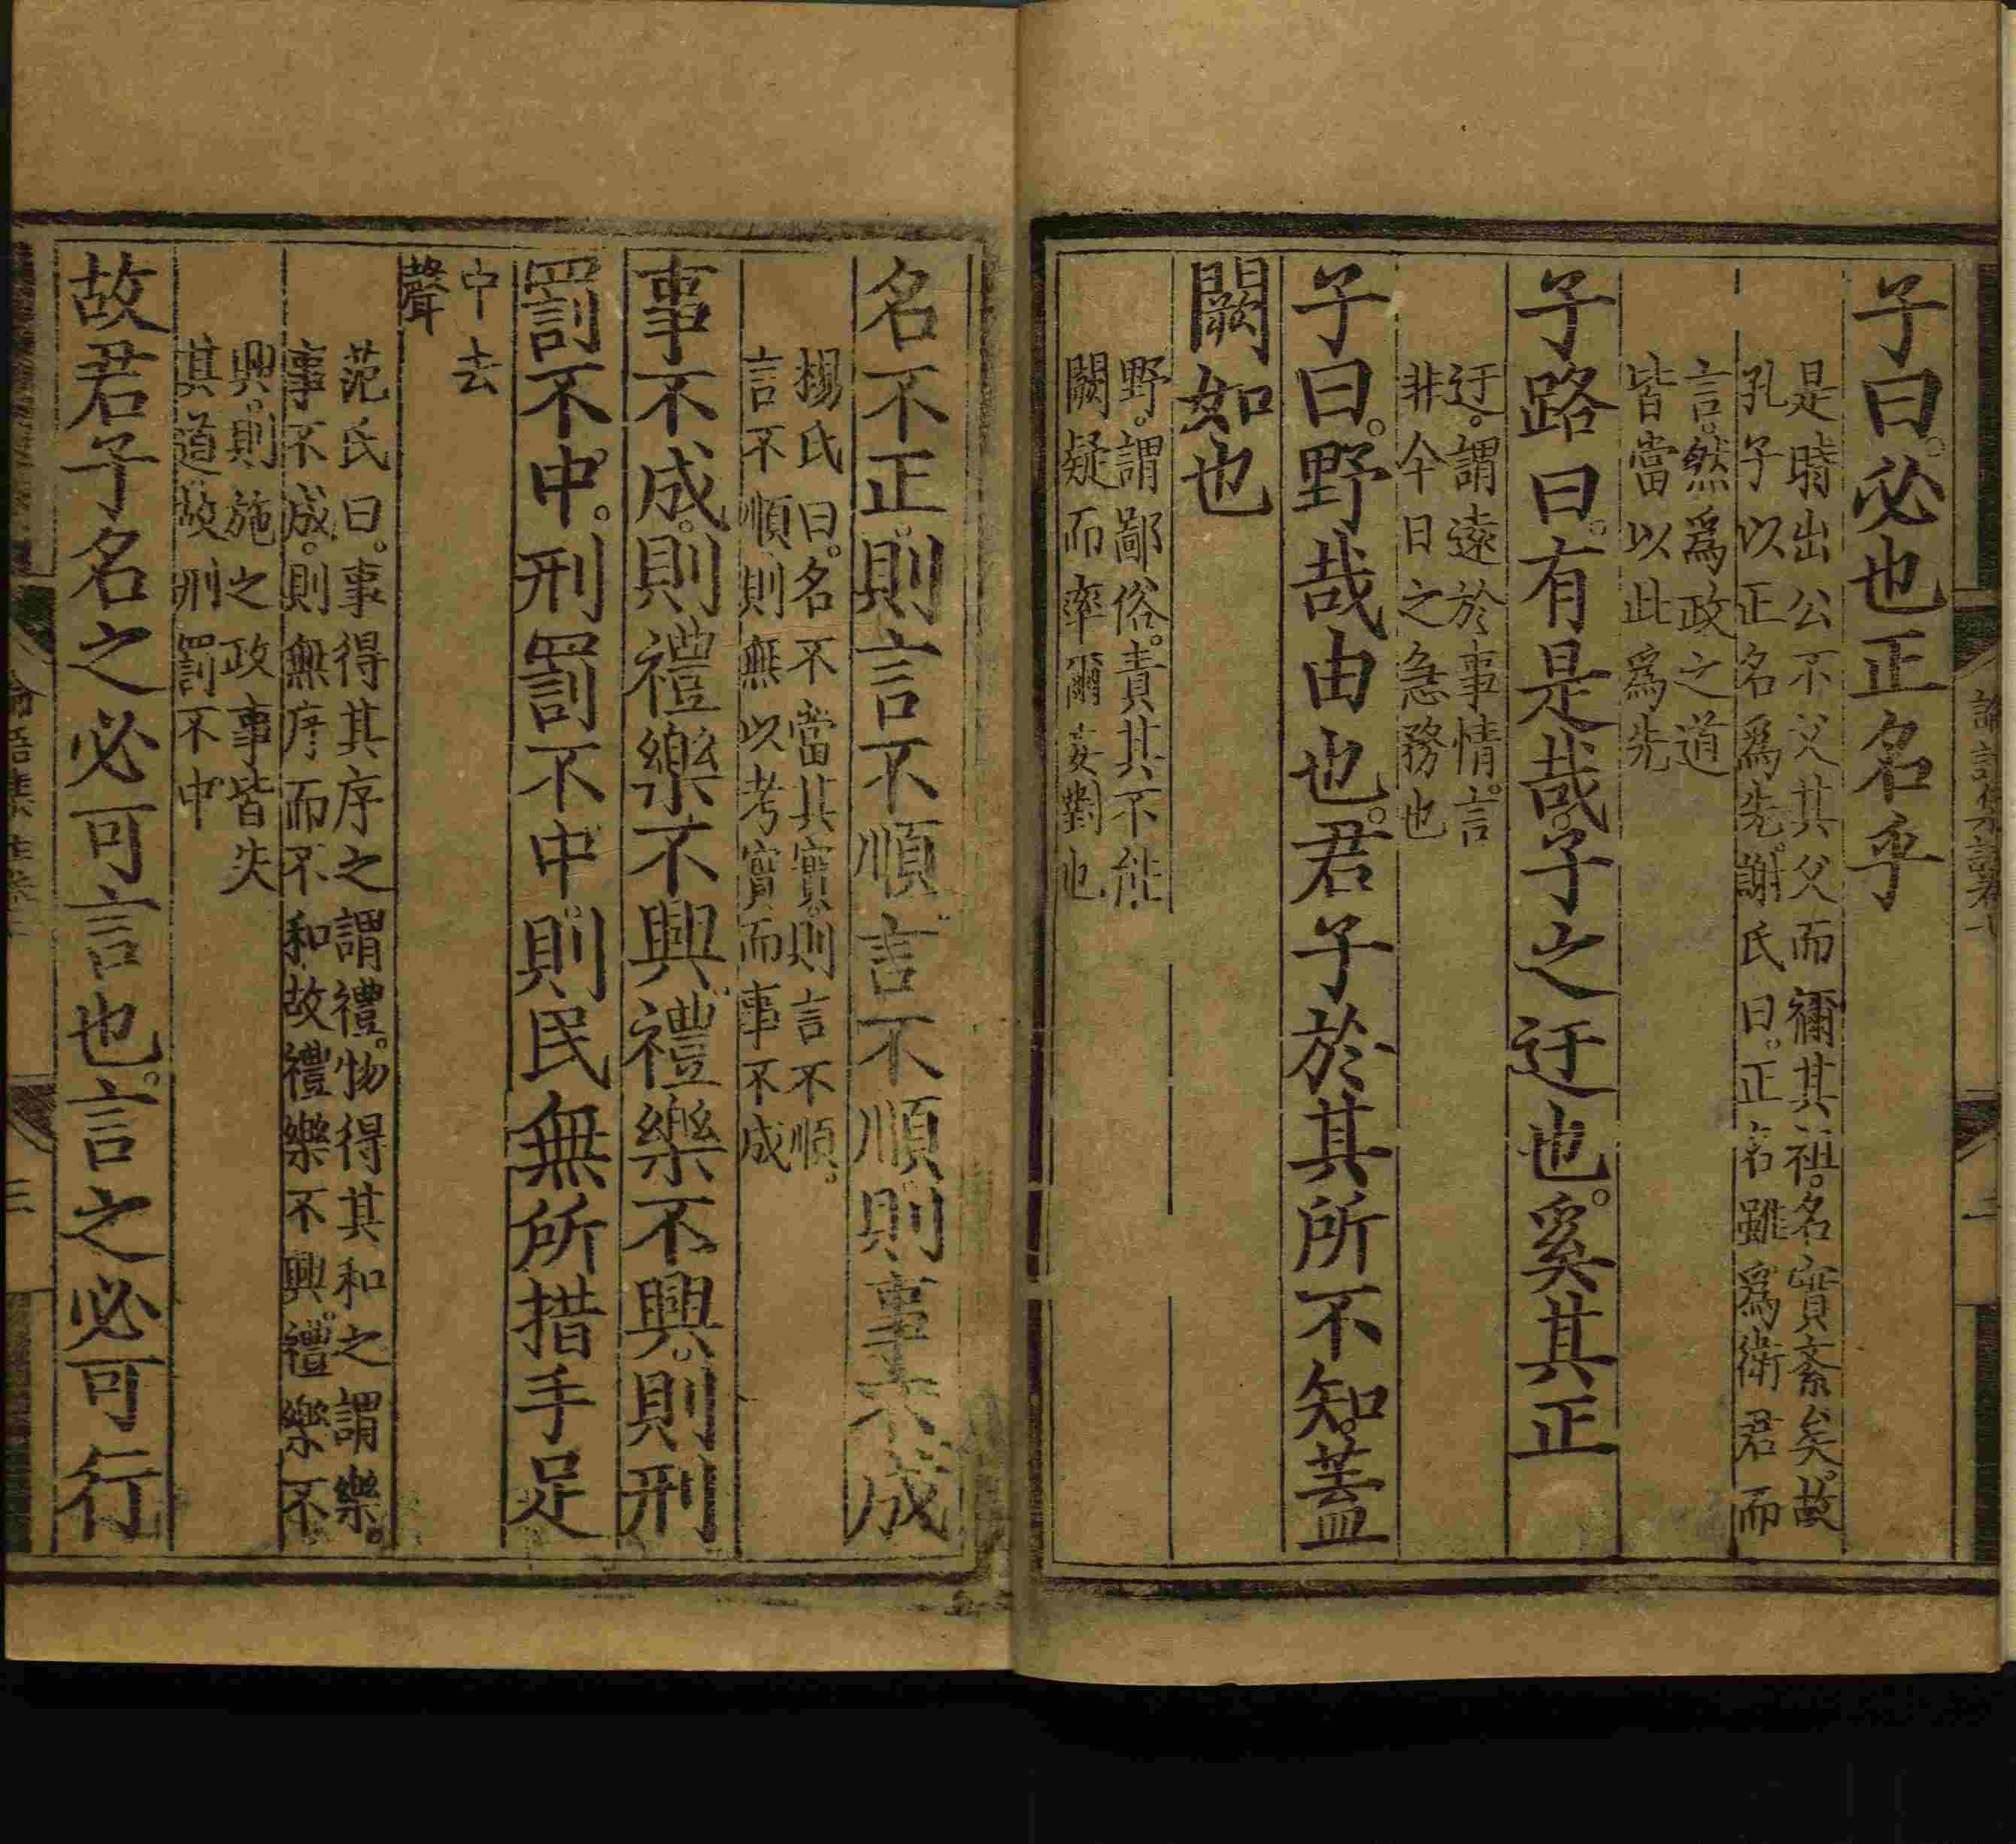 子曰。必也正名乎
是時出公不父其父而禰其祖。名實紊矣。故
孔子以正名爲先。謝氏曰。正名雖爲衛君而
言。然爲政之道
皆當以此爲先
子路曰。有是哉。子之迂也。奚其正
迂。謂遠於事情。言
非今日之急務也
子曰。野哉由也。君子於其所不知。蓋
闕如也
野。謂鄙俗。責其不能
闕疑而率爾妄對也
名不正。則言不順。言不順。則事不成
楊氏曰。名不當其實。則言不順。
言不順則無以考實而事不成
事不成。則禮樂不興。禮樂不興。則刑
罰不中。刑罰不中。則民無所措手足
中去
聲
范氏曰。事得其序之謂禮。物得其和之謂樂。
事不成。則無序而不和。故禮樂不興。禮樂不
興。則施之政事皆失
其道。故刑罰不中
故君子名之必可言也。言之必可行
論語集註卷
三